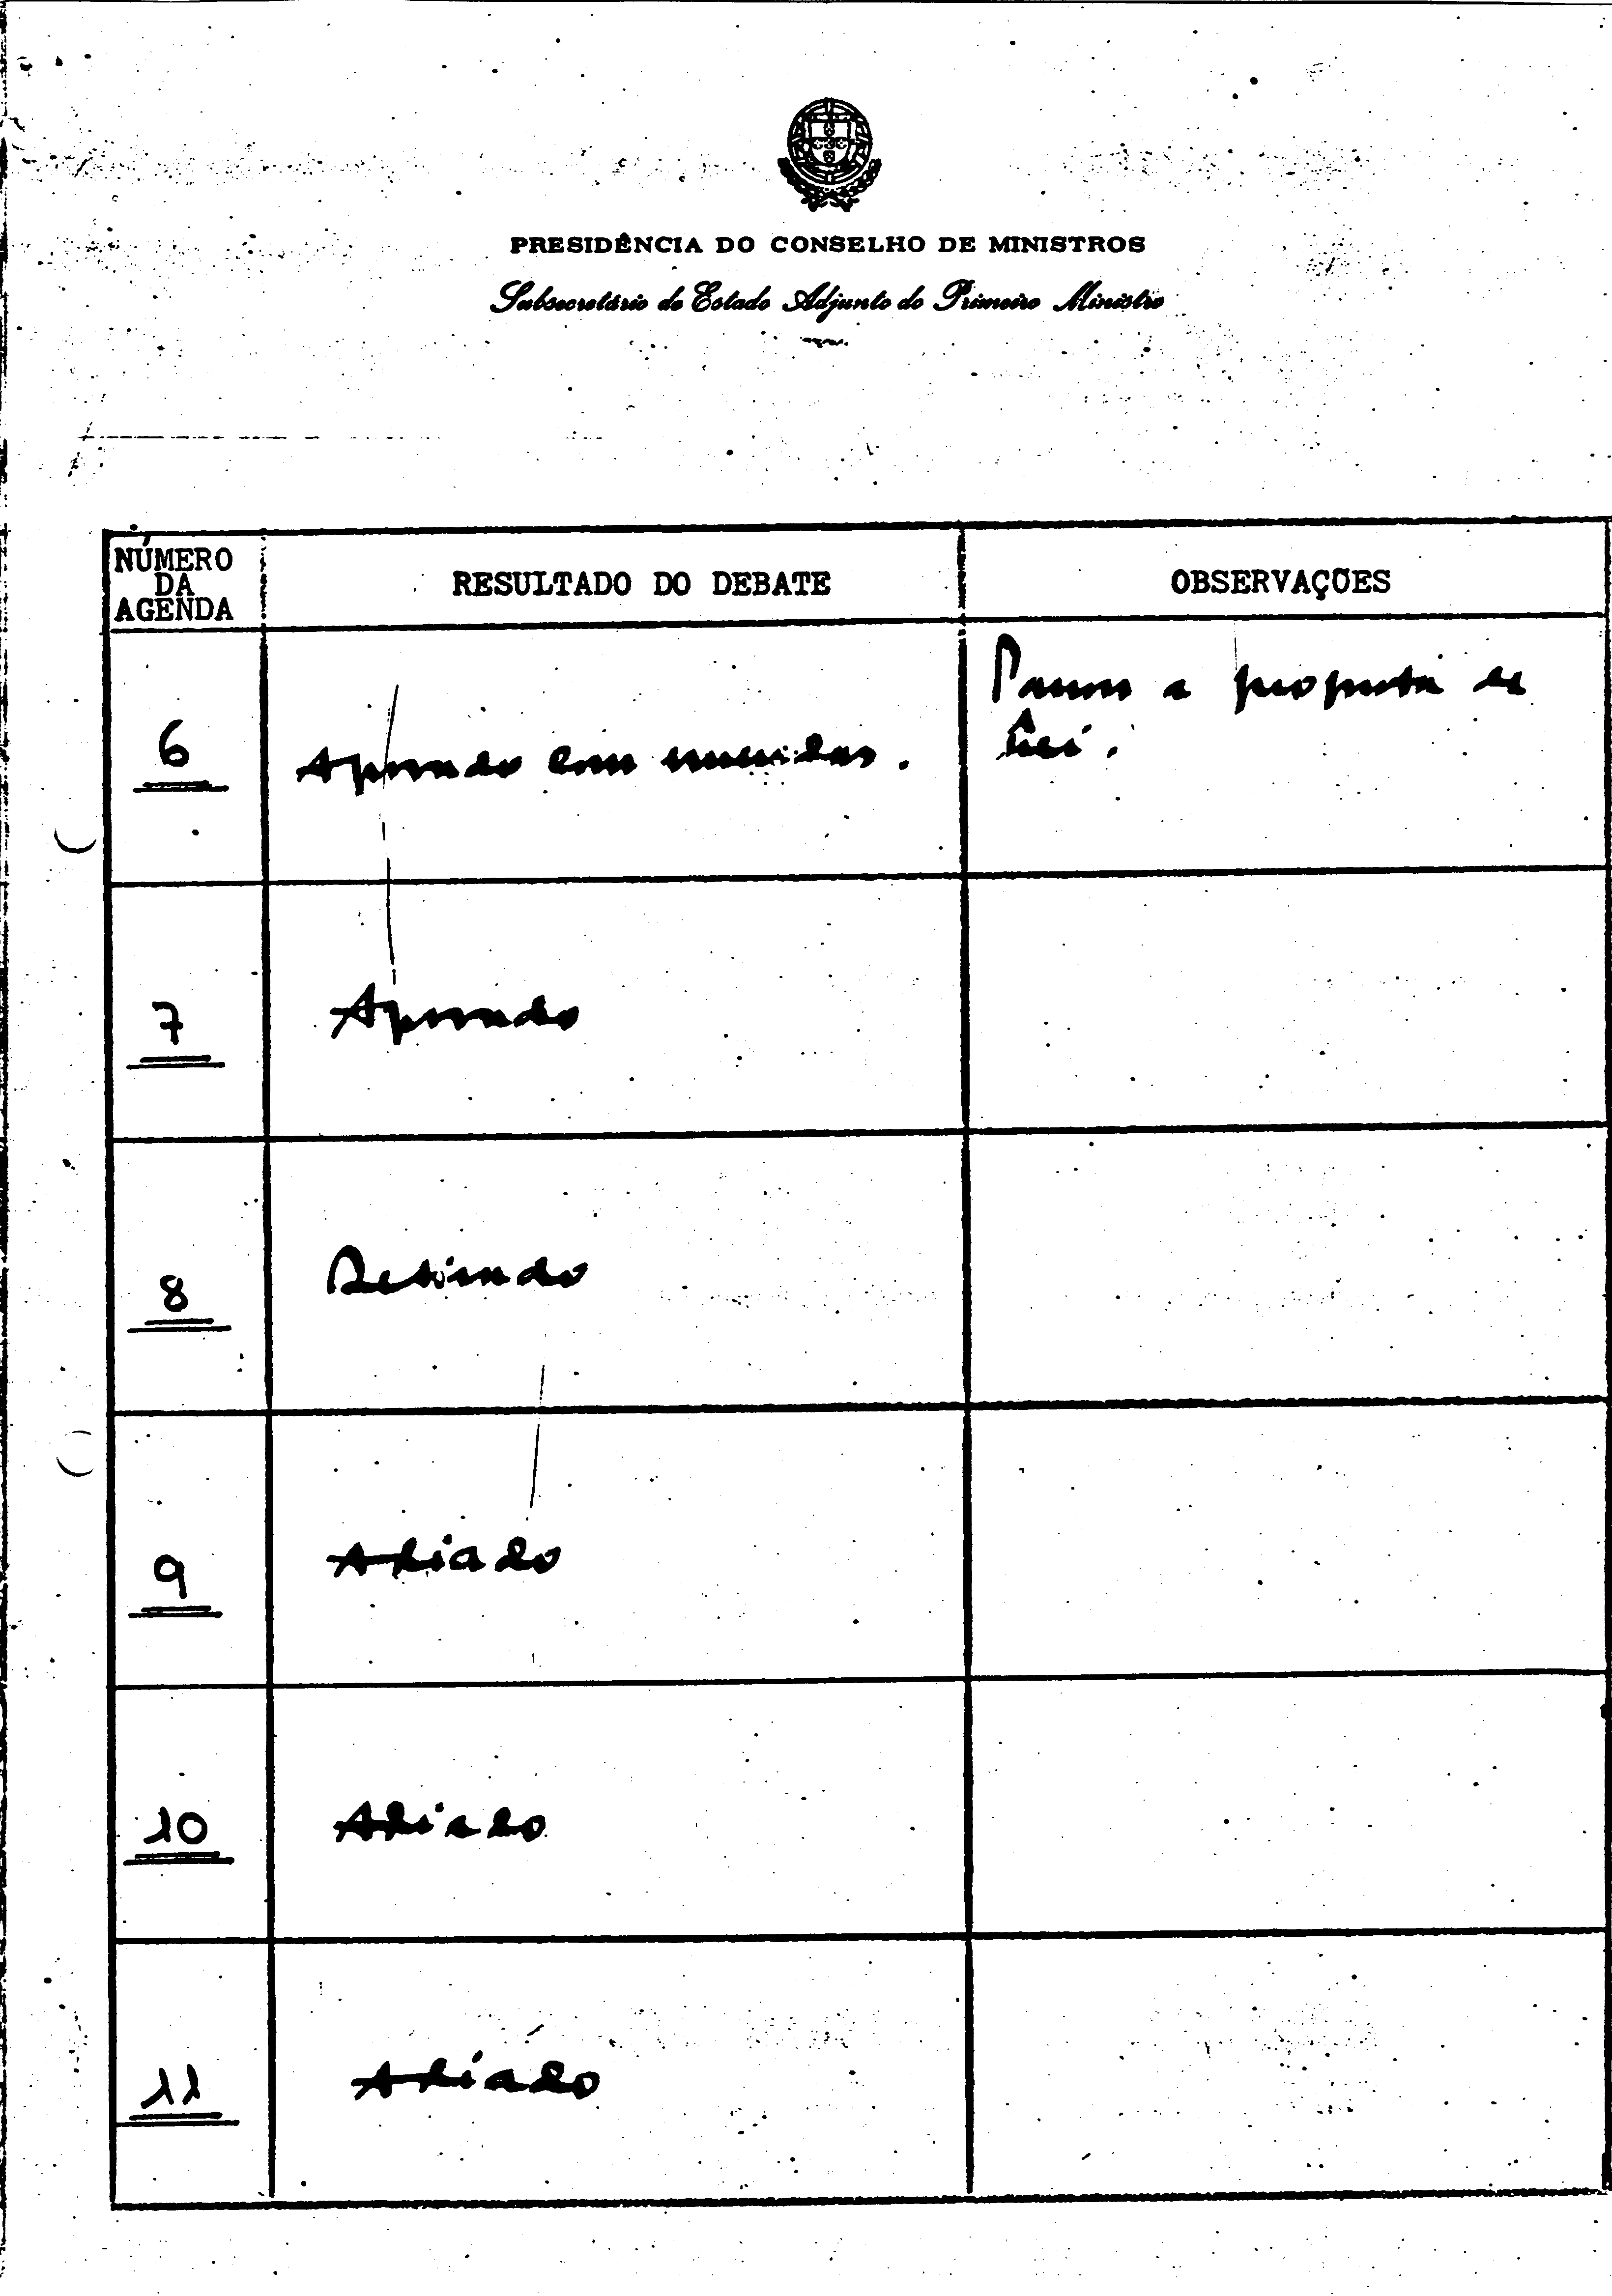 PRESIDÊNCIA DO CONSELHO DE MINISTROS
Subsecretário de Estado Adjunto do Primeiro Ministro
NÚMERO DA AGENDA
RESULTADO DO DEBATE
OBSERVAÇÕES
6
Aprovado com emendas.
Passou a proposta de
lei.
7
Aprovado
8
Retirado
9
Adiado
10
Adiado
11
Adiado